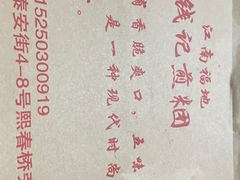 江南福地
钱记煎米团
香脆爽口，五味
是一种现代时尚
15250300919
安街4-8号熙春桥